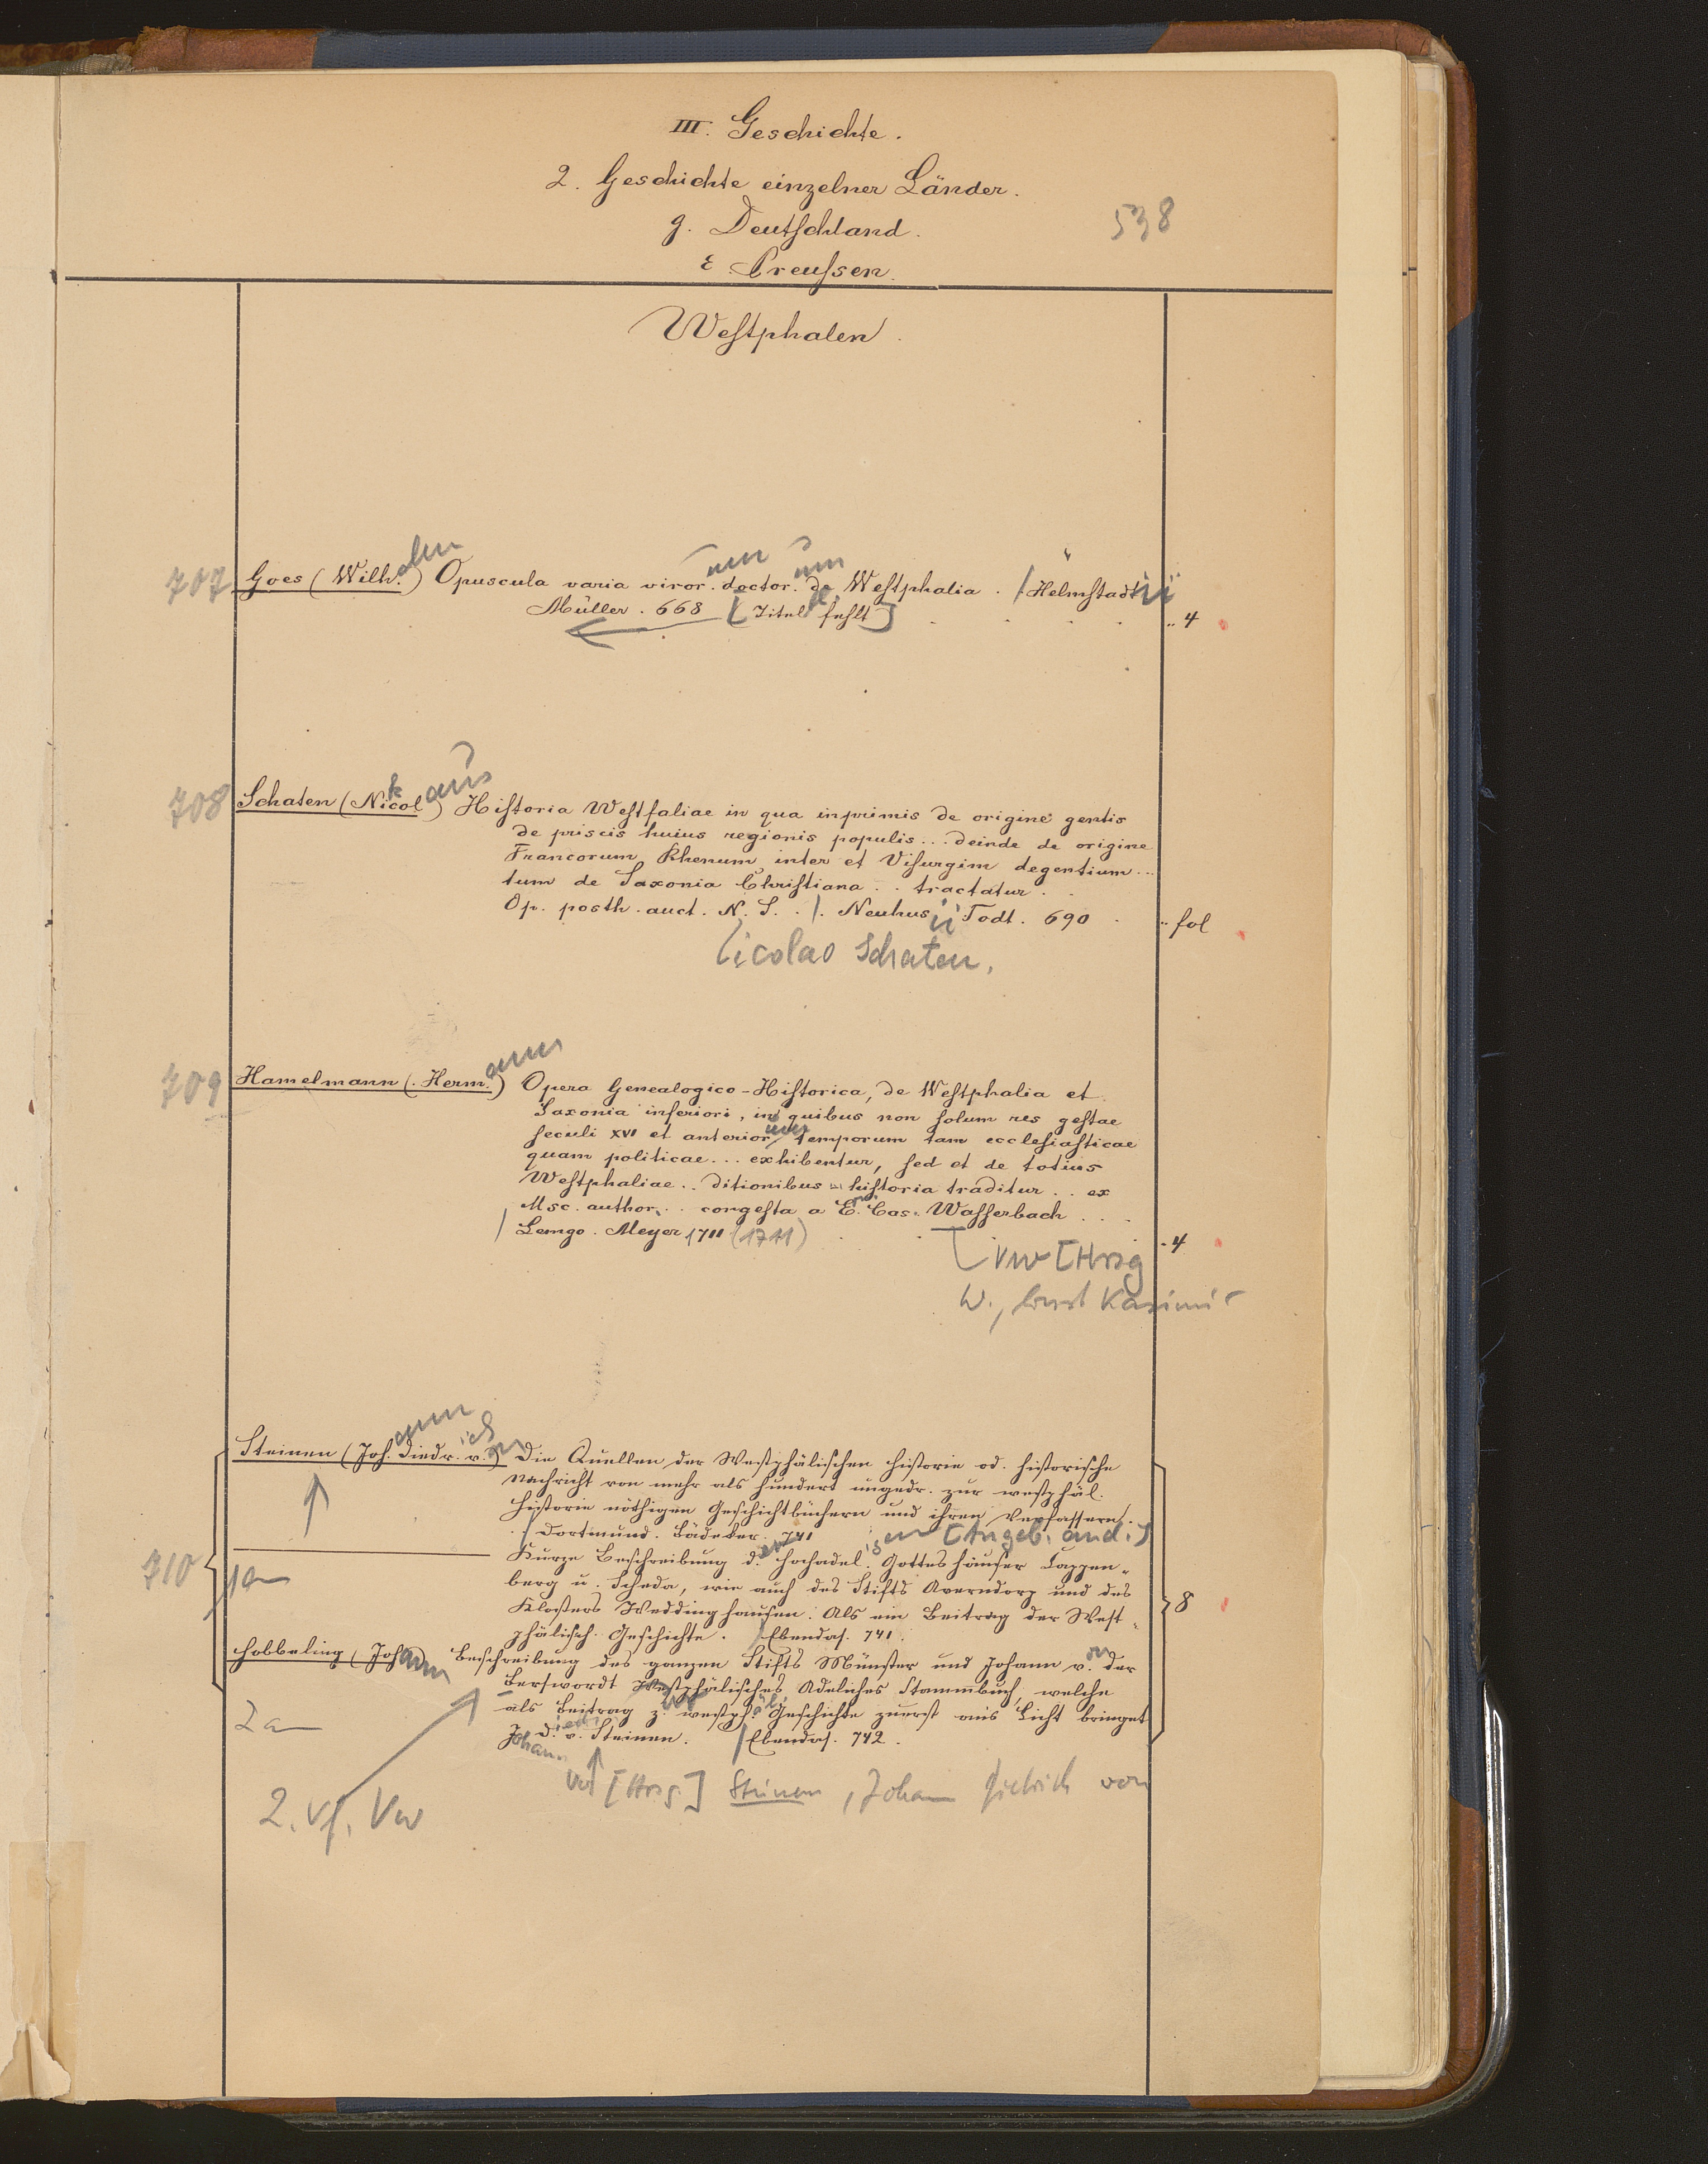 III. Geschichte.
2. Geschichte einzelner Länder.
g. Deutschland.
538
ε Preussen.
Westphalen.
707 Goes (Wilh.elm) Opuscula varia viror.um doctor.um de Westphalia. / Helmstadtii
Müller. 668 [Titel fehlt] .. 4
708 Schaten (Nikolaus) Historia Westfaliae in qua inprimis de origine gentis
de priscis huius regionis populis... deinde de origine
Francorum Rhenum inter et Visurgim degentium...
tum de Saxonia Christiana .. tractatur.
Op. posth. auct. N. S. . /. Neuhusii Todt. 690 .. fol
icolao Schaten.
709 Hamelmann (Herm.ann) Opera Genealogico-Historica, de Westphalia et
Saxonia inferiori, in quibus non solum res gestae
seculi XVI et anteriorum temporum tam ecclesiasticae
quam politicae... exhibentur, sed et de totius
Westphaliae .. ditionibus historia traditur .. ex
Msc. author. .. congesta a E. Cas. Wasserbach ...
/ Lemgo. Meyer 1711 (1711) . 4
[VW [Hrsg
W., Ernst Kasimir
Steinen (Joh.ann Diedr.ich v.on) Die Quellen der Westphälischen Historie od. historische
Nachricht von mehr als hundert ungedr. zur westphäl.
Historie nöthigen Geschichtbüchern und ihren Verfassern.
/ Dortmund. Bädeker. 741
[Angeb. and.]
710 1 an Kurze Beschreibung d.er hochadel.igen Gotteshäuser Cappen-
berg u. Scheda, wie auch des Stifts Averndorp und des
Klosters Weddinghausen. Als ein Beitrag der West-
phälisch. Geschichte. / Ebendas. 741. 8
Hobbeling (Johann) Beschreibung des ganzen Stifts Münster und Johann v.on der
Berswordt Westphälisches Adeliches Stammbuch, welche
2 an als Beitrag z.ur westph.äl. Geschichte zuerst ans Licht bringet
Johann D.iedr. v. Steinen. / Ebendas. 742.
VW [Hrsg.] Steinen, Johann Dietrich von
2. Vf. VW